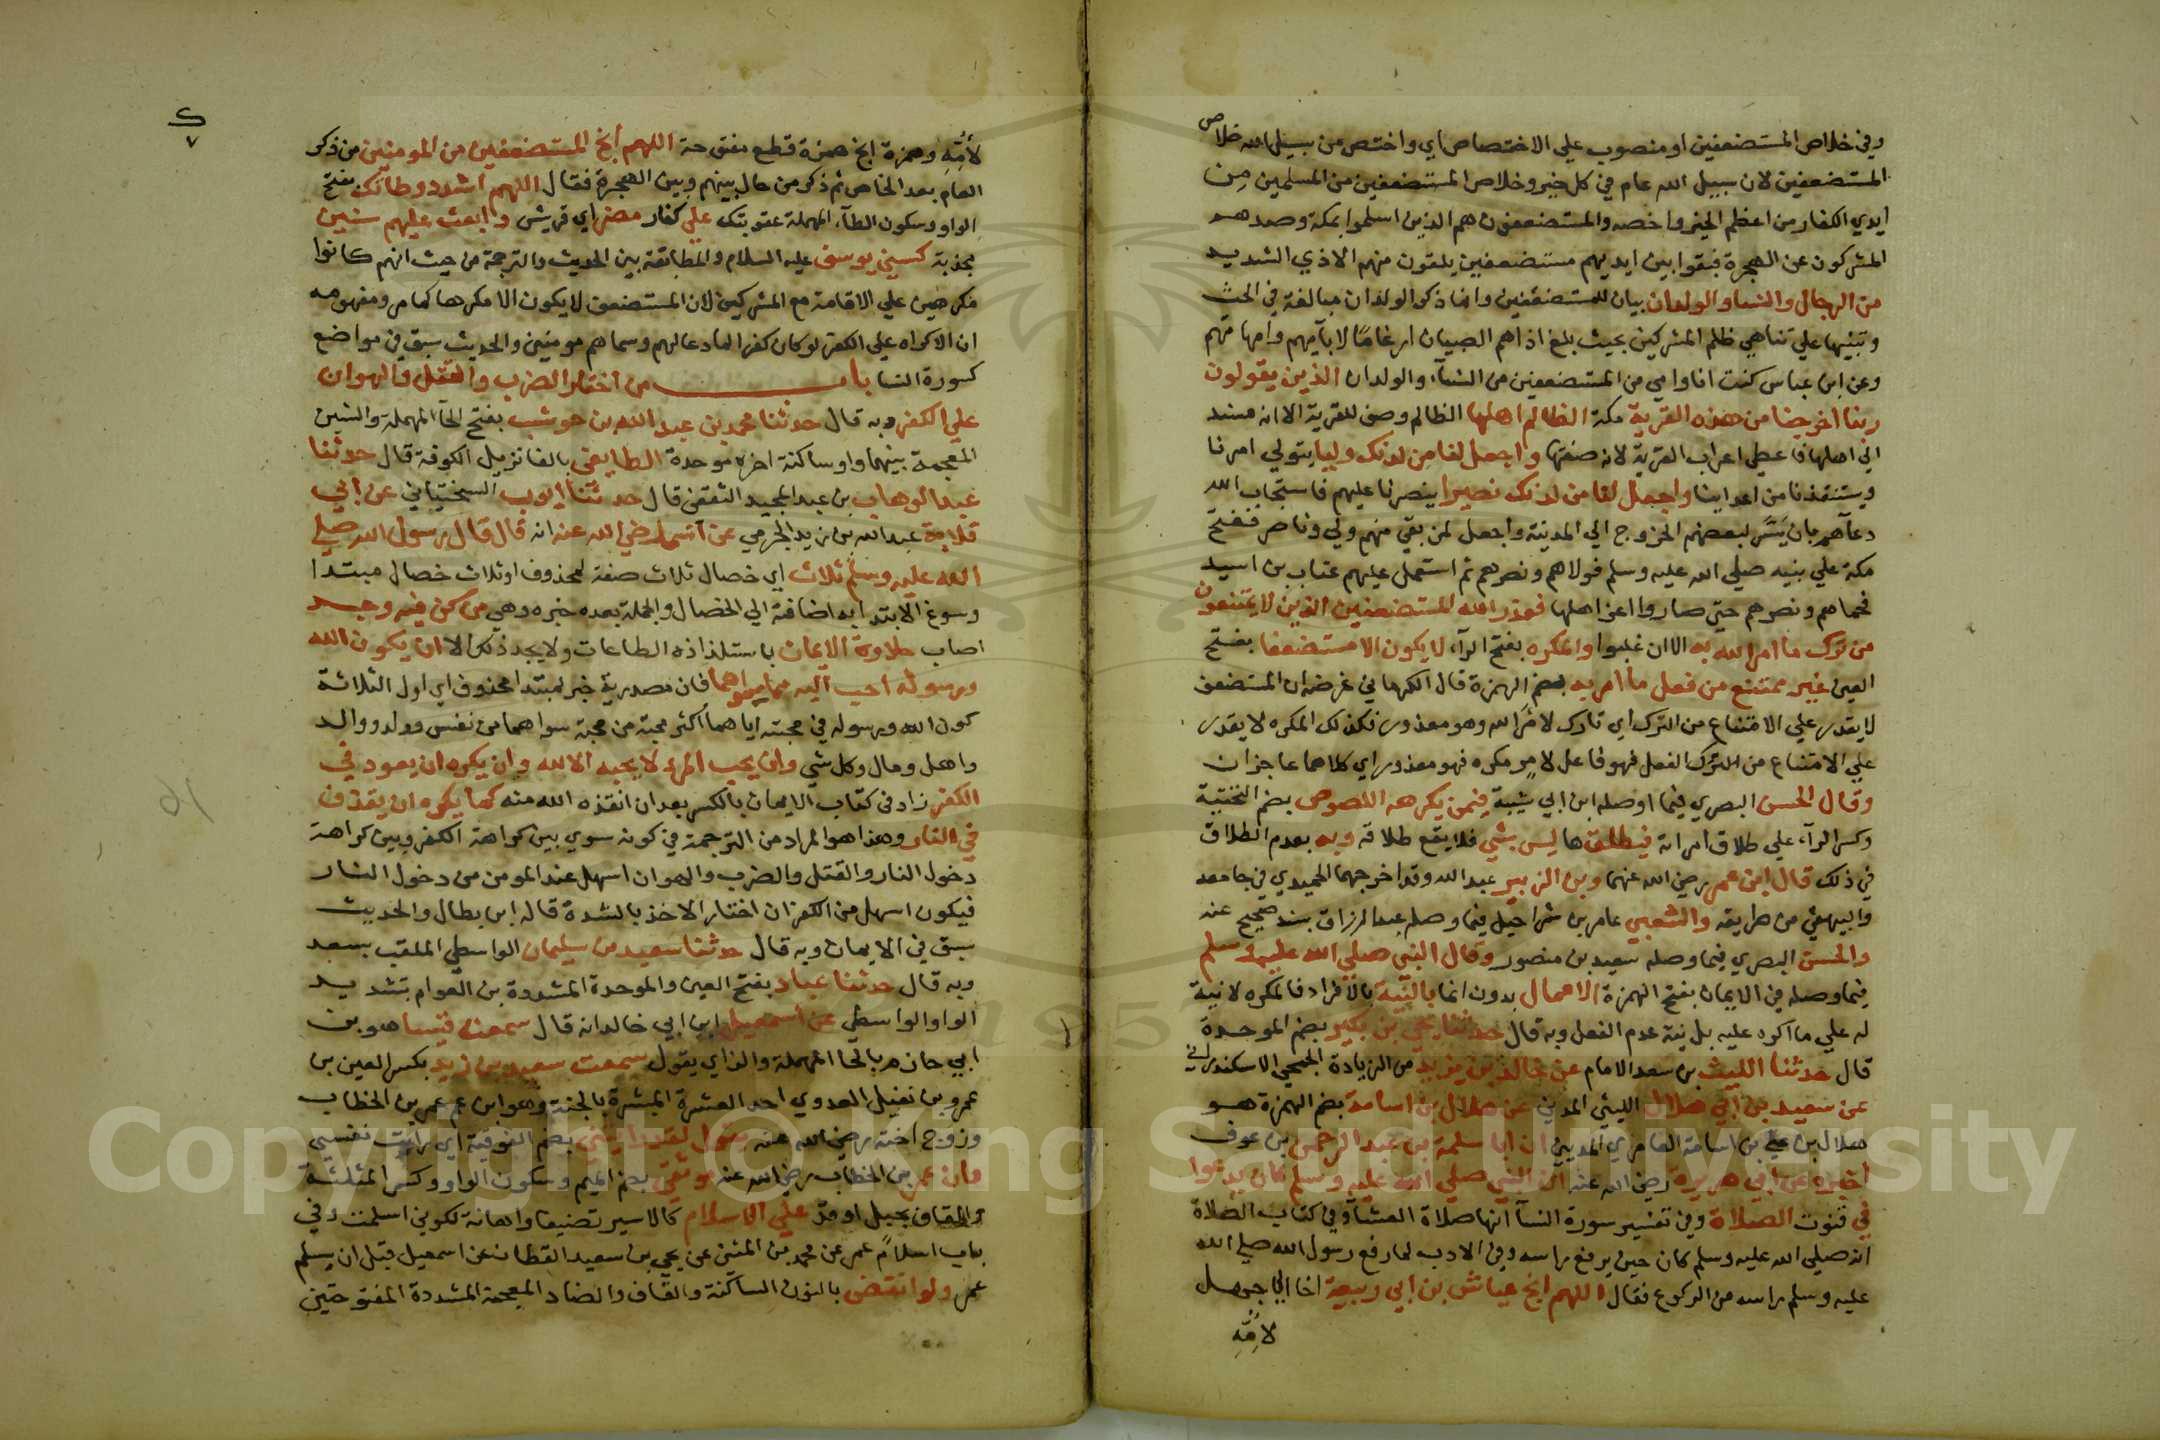 وفي خلاص المستضعفين او منصوب علي الاختصاص اي واختص من سبيل الله خلاص
المستضعفين لان سبيل الله عام في كل خير وخلاص المستضعفين من المسلمين مِن
ايدي الكفار من اعظم الخير واخصه والمستضعفون هم الذين اسلموا بمكة وصدهم
المشركون عن الهجرة فبقوا بين ايديهم مستضعفين يلقون منهم الاذي الشديد
من الرجال والنسا والولدان بيان للمستضعفين وانما ذكر الولدان مبالغة في الحث
وتنبيها علي تناهي ظلم المشركين بحيث بلغ اذاهم الصبيان ارغاما لابآيهم وامهاتهم
وعن ابن عباس كنت انا وامي من المستضعفين من النسآء والولدان الذين يقولون
ربنا اخرجنا من هذه القرية مكة الظالم اهلها الظالم وصف للقرية الا انه مسند
الي اهلها فاعطي اعراب القرية لانه صفتها واجعل لنا من لدنك وليا يتولي امرنا
ويستنقذنا من اعداينا واجعل لنا من لدنك نصيرا ينصرنا عليهم فاستجاب الله
دعآهم بان يَسَّر لبعضهم الخروج الي المدينة واجعل لمن بقي منهم ولي وناصر ففتح
مكة علي نبيه صلي الله عليه وسلم فولاهم ونصرهم ثم استعمل عليهم عتاب بن اسيد
فحماهم ونصرهم حتي صاروا اعز اهلها فعذر الله المستضعفين الذين لا يمتنعون
من ترك ما امر الله به الا ان غلبوا والمكره بفتح الرآء لا يكون الا مستضعفا بفتح
العين غير ممتنع من فعل ما امر به بضم الهمزة قال الكرماني غرضه ان المستضعف
لا يقدر علي الامتناع من الترك اي تارك لامر الله وهو معذور فكذلك المكره لا يقدر
علي الامتناع من الترك الفعل فهو فاعل لامر مكره فهو معذور اي كلاهما عاجزان
وقال الحسن البصري فيما اوصله ابن ابي شيبة فيمن يكرهه اللصوص بضم التحتية
وكسر الرآء علي طلاق امراته فيطلقها ليس بشي فلا يقع طلاقه وبه بعدم الطلاق
في ذلك قال ابن عمر رضي الله عنهما وبن الزبير عبد الله وقد اخرجهما الحميدي في جامعه
والبيهقي من طريقه والشعبي عامر بن شراحيل فيما وصله عبد الرزاق بسند صحيح عنه
والحسن البصري فيما وصله سعيد بن منصور وقال النبي صلي الله عليه وسلم
فيما وصله في الايمان بفتح الهمزة الاعمال بدون انما بالنية بالافراد فالمكره لا نية
له علي ما اكره عليه بل نية عدم الفعل وبه قال حدثنا يحي بن بكير بضم الموحدة
قال حدثنا الليث بن سعد الامام عن خالد بن يزيد من الزيادة الجمحي الاسكندراني
عن سعيد بن ابي هلال الليثي المدني عن هلال بن اسامة بضم الهمزة هو
هلال بن علي بن اسامة العامري المديني ان ابا سلمة بن عبد الرحمن بن عوف
اخبره عن ابي هريرة رضي الله عنه ان النبي صلي الله عليه وسلم كان يدعوا
في قنوت الصلاة وفي تفسير سورة النسآ انها صلاة العشآ وفي كتاب الصلاة
انه صلي الله عليه وسلم كان حين يرفع راسه وفي الادب لما رفع رسول الله صلي الله
عليه وسلم راسه من الركوع فقال اللهم انج عياش بن ابي ربيعة اخا ابي جهل
لاُمِّهِ
ك
٧
لاُمِّهِ وهمزة انج همزة قطع مفتوحة اللهم انج المستضعفين من المومنين من ذكر
العام بعد الخاص ثم ذكر من حال بينهم وبين الهجرة فقال اللهم اشدد وطاتك بفتح
الواو وسكون الطآء المهملة عقوبتك علي كفار مضر اي قريش وابعث عليهم سنين
مجذبة كسني يوسف عليه السلام والمطابقة بين الحديث والترجمة من حيث انهم كانوا
مكرهين علي الاقامة مع المشركين لان المستضعف لا يكون الا مكرها كما مر ومفهومه
ان الاكراه علي الكفر لو كان كفرا لما دعا لهم وسماهم مومنين والحديث سبق في مواضع
كسورة النسا باب من اختار الضرب والقتل والهوان
علي الكفر وبه قال حدثنا محمد بن عبد الله بن حوشب بفتح الحآ المهملة والشين
المعجمة بينهما واو ساكنة اخره موحدة الطايفي بالفا نزيل الكوفة قال حدثنا
عبد الوهاب بن عبد المجيد الثقفي قال حدثنا ايوب السختياني عن ابي
قلابة عبد الله بن زيد الجرمي عن انس رضي الله عنه انه قال قال رسول الله صلي
الله عليه وسلم ثلاث اي خصال ثلاث صفة لمحذوف او ثلاث خصال مبتدا
وسوغ الابتدا به اضافة الي الخصال والجملة بعده خبره وهي من كن فيه وجد
اصاب حلاوة الايمان باستلذاذه الطاعات ولا يجد ذلك الا ان يكون الله
ورسوله احب اليه مما سواهما فان مصدرية خبر لمبتدا محذوف اي اول الثلاثة
كون الله ورسوله في محبته اياهما اكثر محبة من محبة سواهما من نفس وولد ووالد
واهل ومال وكل شي وان يحب المرء لا يحبه الا لله وان يكره ان يعود في
الكفر زاد في كتاب الايمان بالكسر بعد ان انقذه الله منه كما يكره ان يقذف
في النار وهذا هو المراد من الترجمة في كونه سوي بين كراهة الكفر وبين كراهة
دخول النار والقتل والضرب والهوان اسهل عند المومن من دخول النار
فيكون اسهل من الكفر ان اختار الاخذ بالشدة قاله ابن بطال والحديث
سبق في الايمان وبه قال حدثنا سعيد بن سليمان الواسطي الملقب بسعد
وبه قال حدثنا عباد بفتح العين والموحدة المشددة بن العوام بتشديد
الواو الواسطي عن اسمعيل ابن ابي خالد انه قال سمعت قيسا هو بن
ابي حازم بالحا المهملة والزاي يقول سمعت سعيد بن زيد بكسر العين بن
عمرو بن نفيل العدوي احد العشرة المبشرة بالجنة وهو ابن عم عمر بن الخطاب
وزوج اخته رضي الله عنه يقول لقد رايتني بضم الفوقية اي رايت نفسي
وان عمر بن الخطاب رضي الله عنه موثقي بضم الميم وسكون الواو وكسر المثلثة
والقاف بحبل او قد علي الاسلام كالاسير تضييقا واهانة لكوني اسلمت وفي
باب اسلام عمر عن محمد بن المثني عن يحي بن سعيد القطان عن اسمعيل قبل ان يسلم
عمر ولو انقض بالنون الساكنة والقاف والضاد المعجمة المشددة المفتوحتين
Copyright © King Saud University
1957